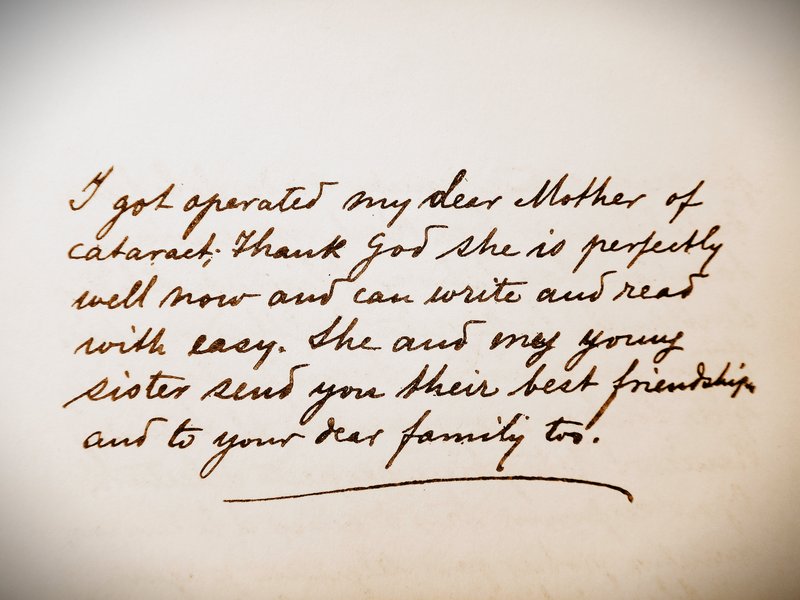 I got operated my dear Mother of
cataract; Thank God she is perfectly
well now and can write and read
with easy. She and my young
sister send you their best friendship
and to your dear family too.